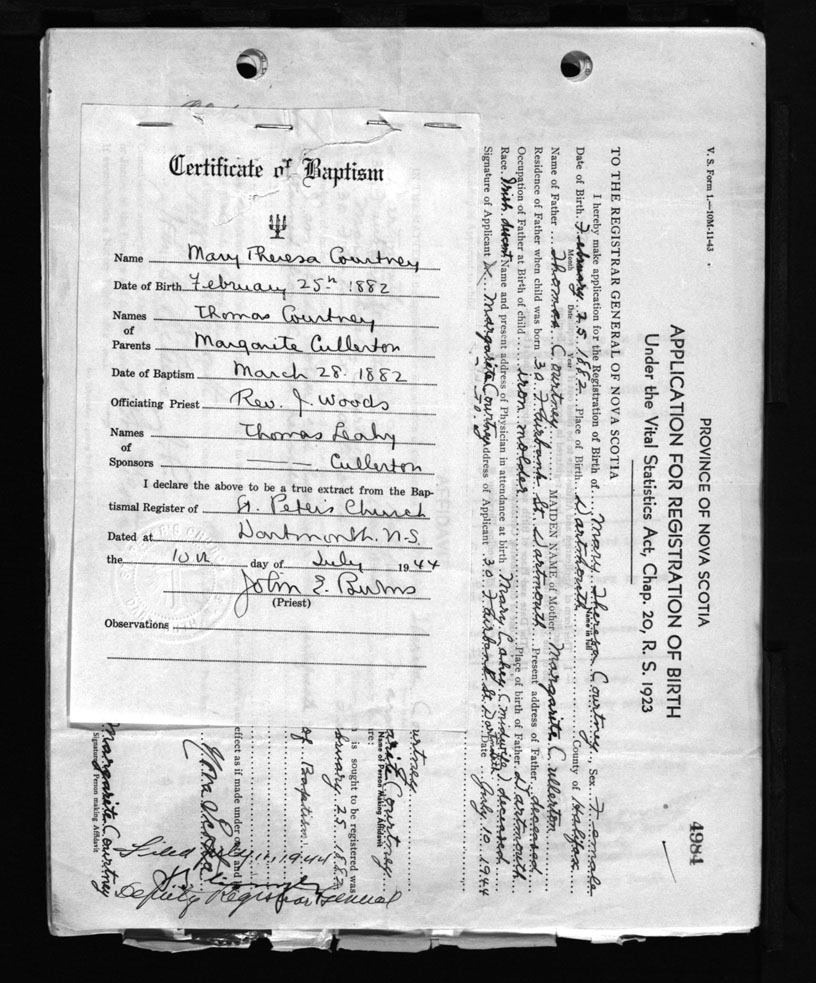 Certificate of Baptism
Name Mary Theresa Courtney
Date of Birth February 25th 1882
Names Thomas Courtney
of
Parents Margarite Cullerton
Date of Baptism March 28. 1882
Officiating Priest Rev. J. Woods
Names Thomas Leahy
of
Sponsors —— — Cullerton
I declare the above to be a true extract from the Bap-
tismal Register of St. Peter's Church
Dated at Dartmouth. N.S.
the 10th day of July 1944
John E. Burns
(Priest)
Observations
V. S. Form 1.—10M-11-43
PROVINCE OF NOVA SCOTIA
4984
APPLICATION FOR REGISTRATION OF BIRTH
Under the Vital Statistics Act, Chap. 20, R. S. 1923
TO THE REGISTRAR GENERAL OF NOVA SCOTIA
I hereby make application for the Registration of Birth of Mary Theresa Courtney, Sex Female
Name in full
Date of Birth February 25 1882 Place of Birth Dartmouth County of Halifax
Month Date Year
Name of Father Thomas Courtney MAIDEN NAME of Mother Margarite Cullerton
Residence of Father when child was born 30 Fairbank St. Dartmouth Present address of Father deceased
Occupation of Father at Birth of child iron molder Place of birth of Father Dartmouth
Race Irish descent Name and present address of Physician in attendance at birth Mary Lahey (midwife) deceased
Signature of Applicant Margarite Courtney Address of Applicant 30 Fairbank St. Dartmouth Date July 10 1944
Courtney
Courtney
Name of Person Making Affidavit
is sought to be registered was
25 1882
of Baptism
effect as if made under oath and
Margarite Courtney
Signature Person making Affidavit
Filed 1944
Deputy Registrar General